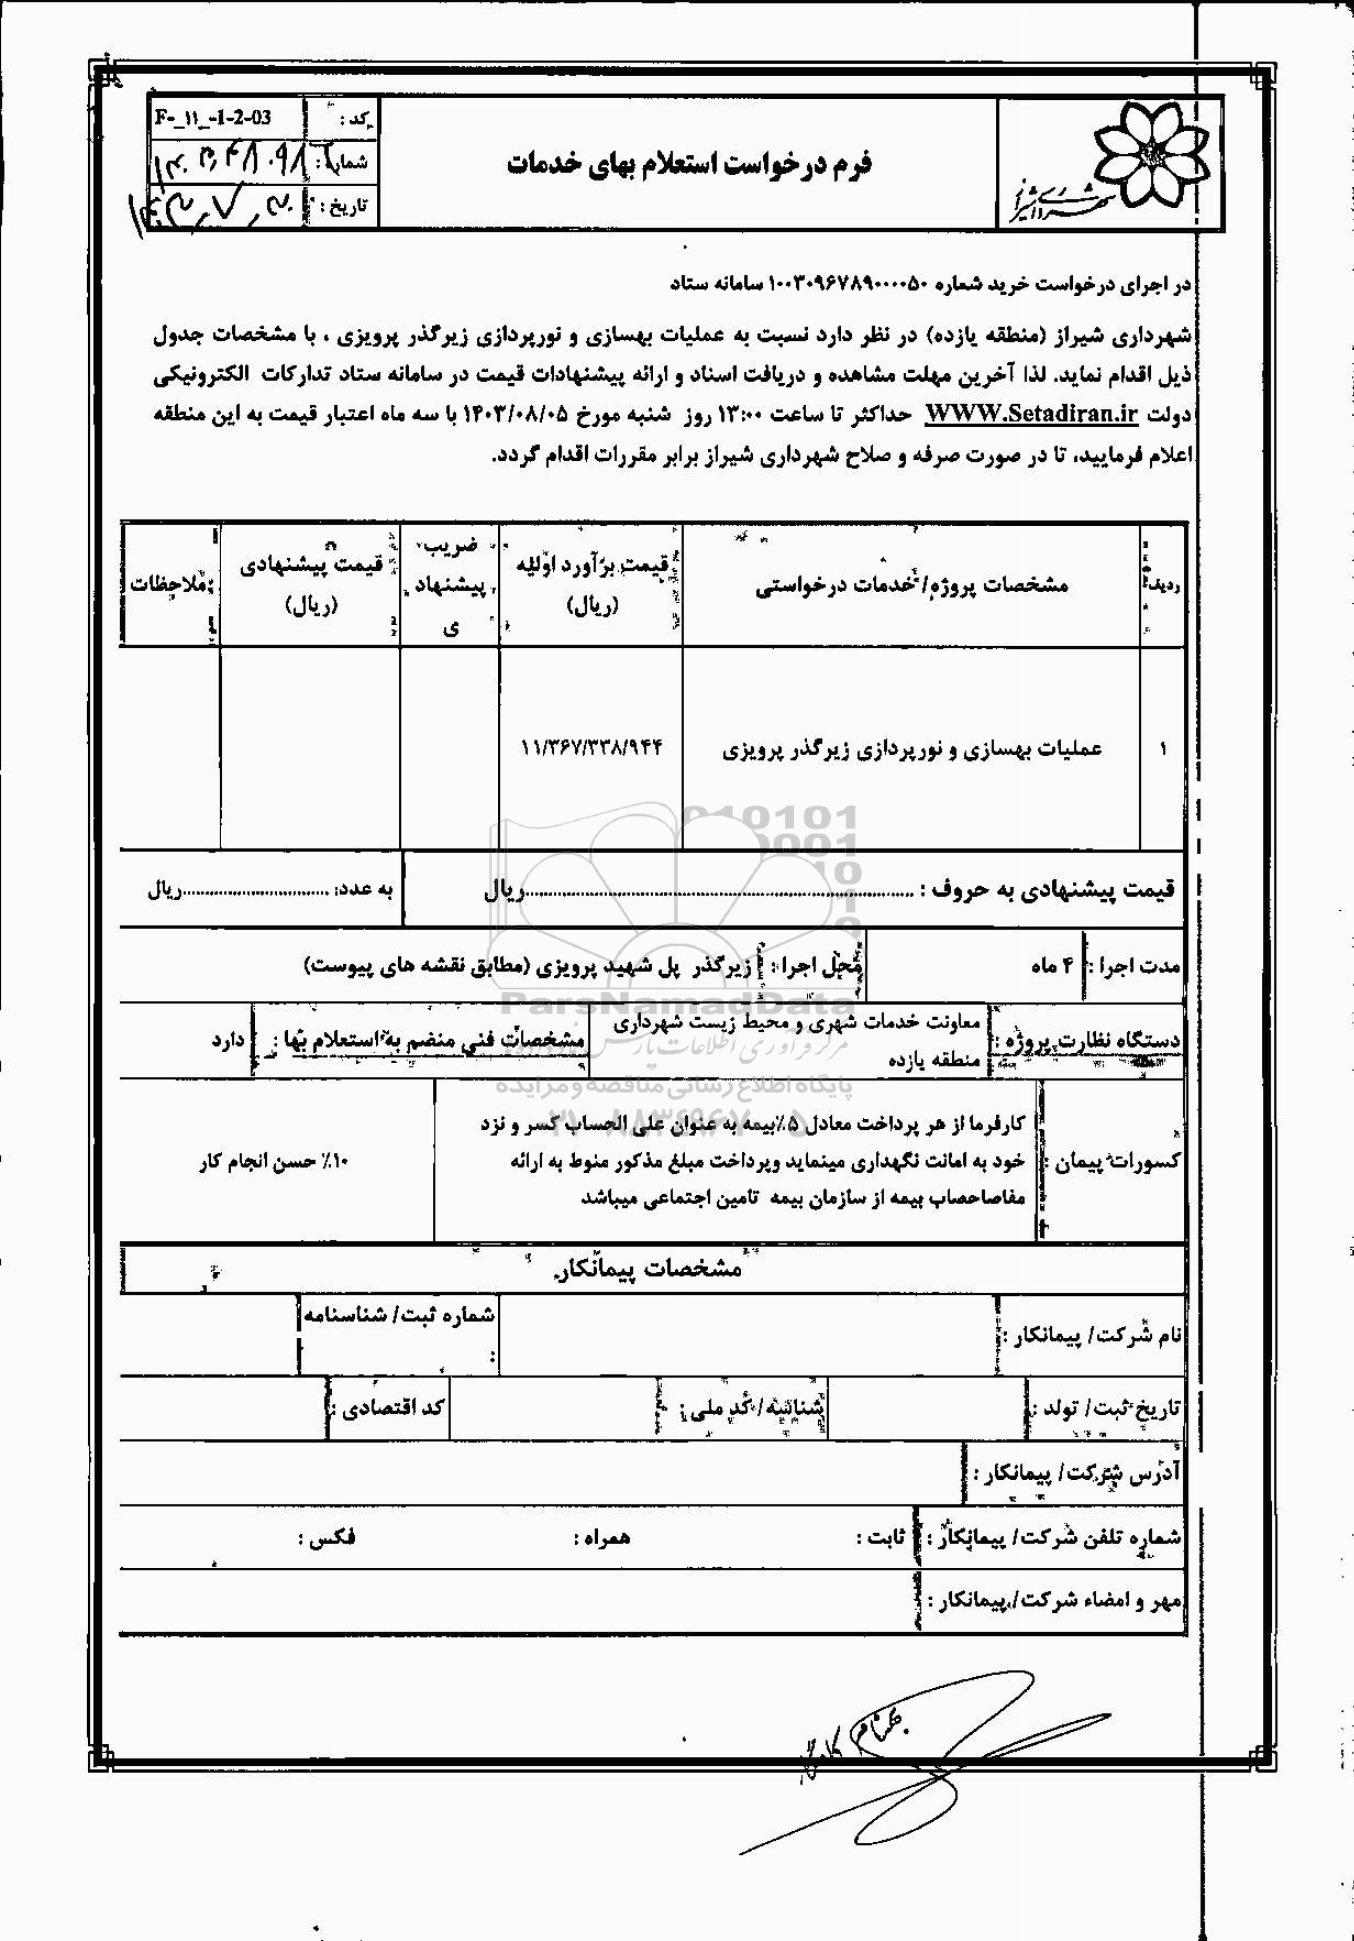 فرم درخواست استعلام بهای خدمات
کد :
F-_۱۱_-1-2-03
شماره :
تاریخ :
در اجرای درخواست خرید شماره ۱۰۰۳۰۹۶۷۸۹۰۰۰۰۵۰ سامانه ستاد
شهرداری شیراز (منطقه یازده) در نظر دارد نسبت به عملیات بهسازی و نورپردازی زیرگذر پرویزی ، با مشخصات جدول
ذیل اقدام نماید. لذا آخرین مهلت مشاهده و دریافت اسناد و ارائه پیشنهادات قیمت در سامانه ستاد تدارکات الکترونیکی
دولت WWW.Setadiran.ir حداکثر تا ساعت ۱۳:۰۰ روز شنبه مورخ ۱۴۰۳/۰۸/۰۵ با سه ماه اعتبار قیمت به این منطقه
اعلام فرمایید، تا در صورت صرفه و صلاح شهرداری شیراز برابر مقررات اقدام گردد.
ردیف
مشخصات پروژه/ خدمات درخواستی
قیمت برآورد اولیه
(ریال)
ضریب
پیشنهاد
ی
قیمت پیشنهادی
(ریال)
ملاحظات
۱
عملیات بهسازی و نورپردازی زیرگذر پرویزی
۱۱/۳۶۷/۳۳۸/۹۴۴
قیمت پیشنهادی به حروف : ............ریال
به عدد: ............ریال
مدت اجرا :
۴ ماه
محل اجرا :
زیرگذر پل شهید پرویزی (مطابق نقشه های پیوست)
دستگاه نظارت پروژه :
معاونت خدمات شهری و محیط زیست شهرداری
منطقه یازده
مشخصات فنی منضم به استعلام بها :
دارد
کسورات پیمان :
کارفرما از هر پرداخت معادل ۵٪بیمه به عنوان علی الحساب کسر و نزد
خود به امانت نگهداری مینماید وپرداخت مبلغ مذکور منوط به ارائه
مفاصاحصاب بیمه از سازمان بیمه تامین اجتماعی میباشد
۱۰٪ حسن انجام کار
مشخصات پیمانکار
نام شرکت/ پیمانکار :
شماره ثبت/ شناسنامه
:
تاریخ ثبت/ تولد :
شناسه/ کد ملی :
کد اقتصادی :
آدرس شرکت/ پیمانکار :
شماره تلفن شرکت/ پیمانکار :
ثابت :
همراه :
فکس :
مهر و امضاء شرکت/ پیمانکار :
ParsNamadData
پایگاه اطلاع رسانی مناقصه و مزایده